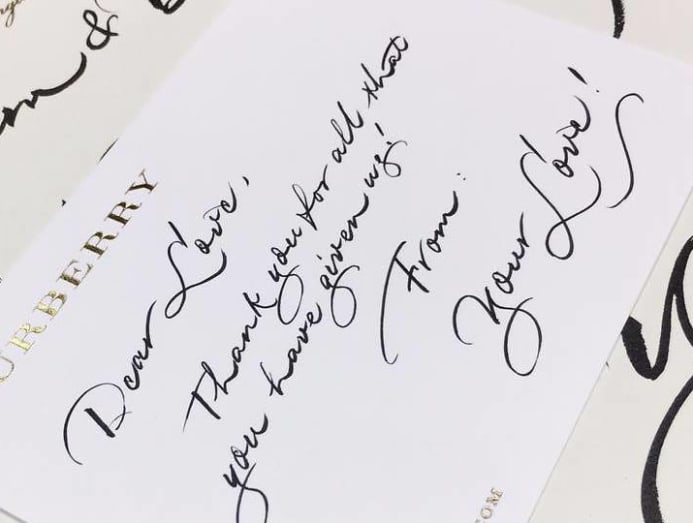 URBERRY
Dear Love,
Thank you for all that
you have given us!
From:
Your Love!
OM